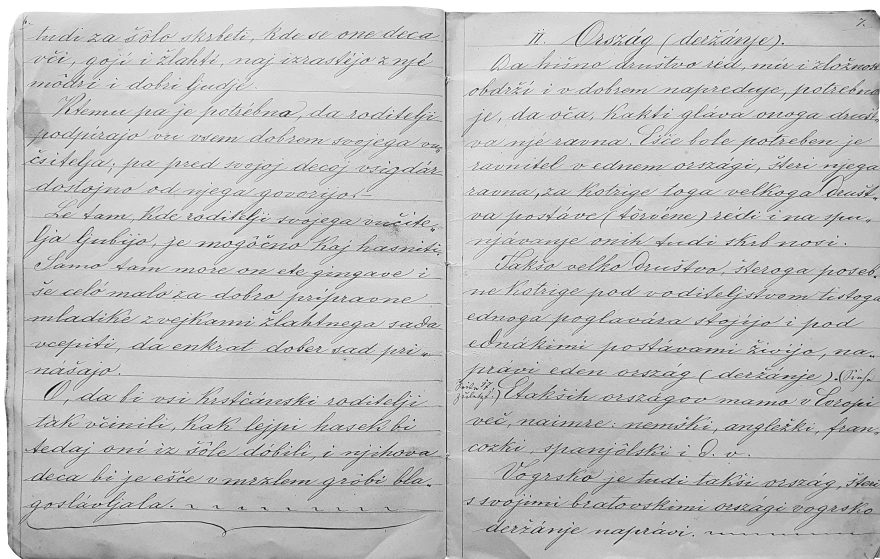 6.
tudi za šôlo skrbeti, kde se one deca
vči, goji i žlahti, naj izrastéjo z njé
môdri i dobri ljudjé.
Ktemi pa je potrêbna, da roditelji
podpirajo vu vsem dobrem svojega vu„
čsitelja; pa pred svojoj decoj vsigdár
dostojno od njega govorijo.–
Le tam, kde roditelji svojega vučite„
lja ljubijo, je mogôčno kaj hasniti.
Samo tam more on ete gingave i
še celô malo za dobro pripravne
mladike z vejkami žlahtnega sada
vcepiti, da enkrat dober sad pri„
nášajo.
O, da bi vsi krstčánski roditelji
tak včinili, kak lejpi hasek bi
tedaj oni iz šôle dôbili, i njihova
deca bi je ešče v mrzlem grôbi bla„
goslávljala.
7.
II. Ország (deržánje).
Da hišno društvo réd, mir i zložnost
obdrži i v dobrem napreduje, potrebno
je, da oča, kakti gláva onoga drušť„
va njé ravna. Ešče bole potreben je
ravnitel v ednem országi, šteri njega
ravna, za kotrige toga velkoga drušť„
va postáve (törvéne) rédi i na spu„
njávanje onih tudi skrb nosi.
Takšo velko društvo, šteroga poseb„
ne kotrige pod voditeljstvom tistoga
ednoga poglavára stojijo i pod
ednákimi postávami živijo, na„
pravi eden ország (deržánje).
Etakših országov mamo v Europi
več, naimre: nemški, angležki, fran„
cozki, spanjôlski i t. v.
Vogrsko je tudi takši ország, šteri
s svojimi bratovskimi országi vogrsko
deržánje naprávi.